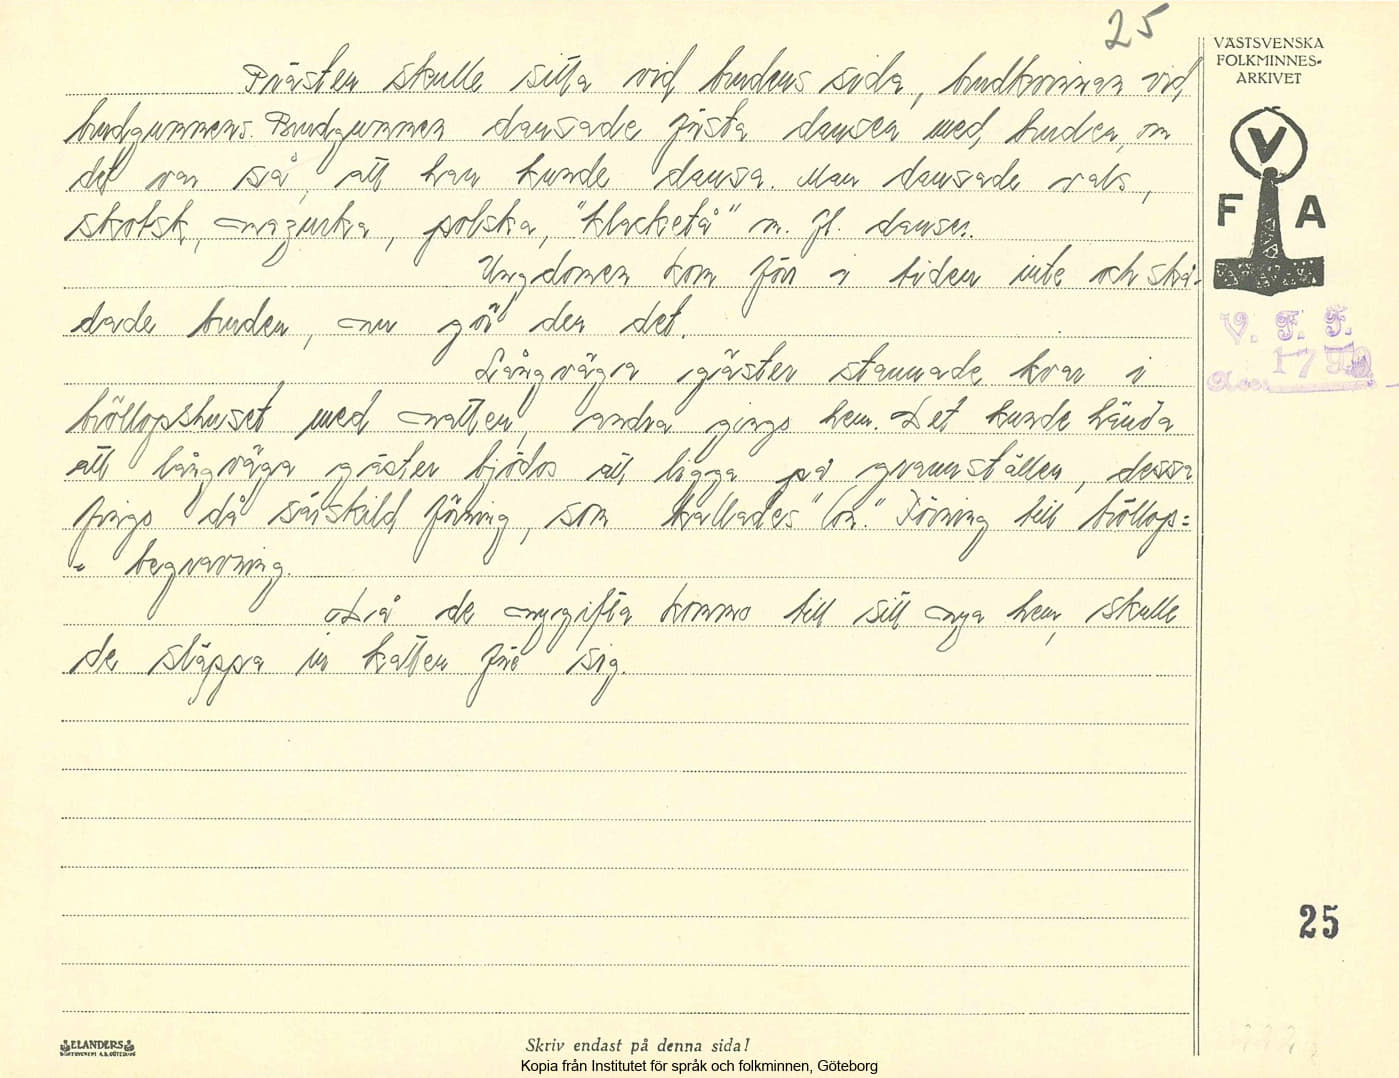 25
VÄSTSVENSKA
FOLKMINNES-
ARKIVET
V
F A
Prästen skulle sitta vid brudens sida, brudkvinnan vid
brudgummens. Brudgummen dansade första dansen med bruden, om
det var så, att han kunde dansa. Man dansade vals,
skotsk, mazurka, polska, "klacketå" m. fl. danser.
Ungdomen kom förr i tiden inte och skå-
dade bruden, nu gör den det.
Långväga gäster stannade kvar i
bröllopshuset med natten, andra gingo hem. Det kunde hända
att långväga gäster bjödos att ligga på grannställen, dessa
fingo då särskild förning, som kallades "lön." Förning till bröllop=
= begravning.
Då de nygifta kommo till sitt nya hem, skulle
de släppa in katten före sig.
V. F. F.
Acc.
25
ELANDERS
BOKTRYCKERI A.B. GÖTEBORG
Skriv endast på denna sida!
Kopia från Institutet för språk och folkminnen, Göteborg